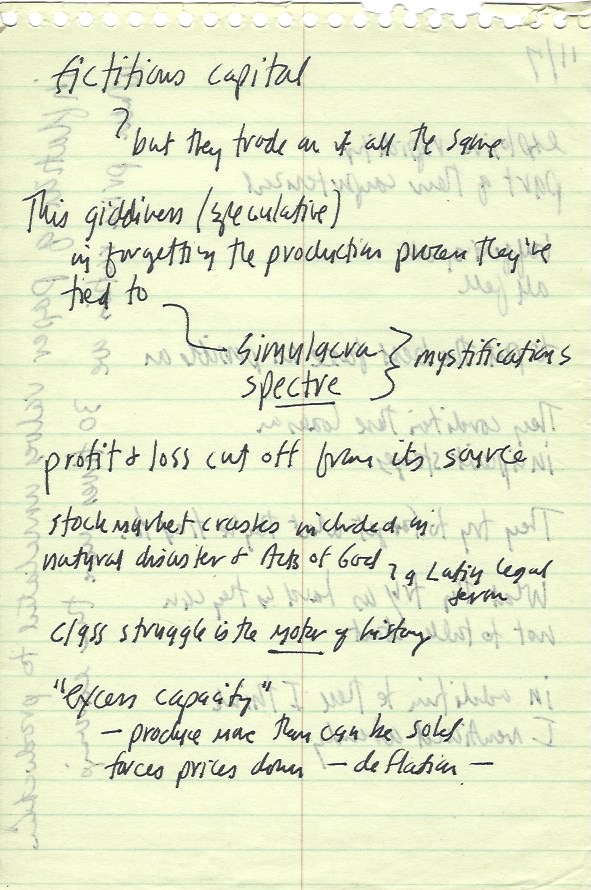 fictitious capital
? but they trade on it all the same
This giddiness (speculative)
in forgetting the production process they're
tied to
simulacra } mystifications
spectre
profit & loss cut off from its source
stock market crashes included in
natural disaster & Acts of God
? a Latin legal
term
class struggle is the motor of history
"excess capacity"
— produce more than can be sold
forces prices down — deflation —